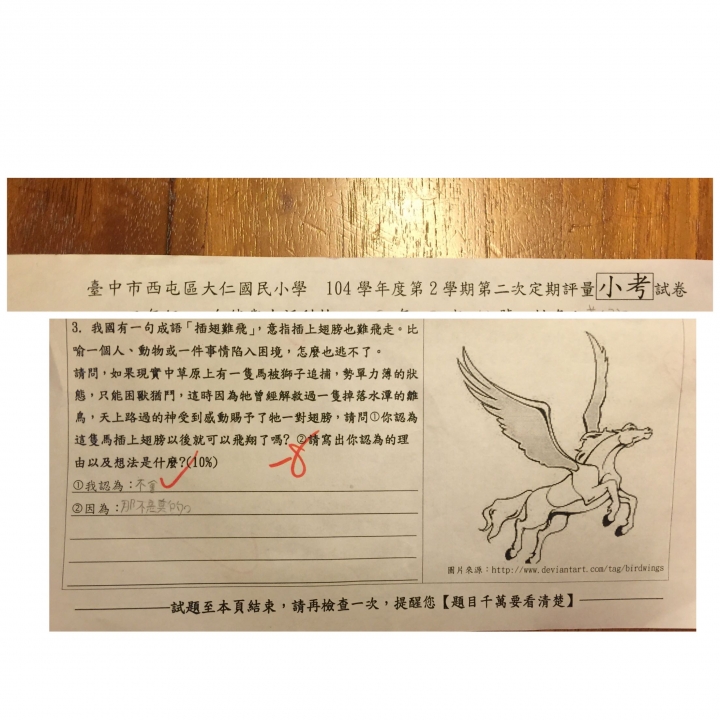 臺中市西屯區大仁國民小學 104學年度第2學期第二次定期評量小考試卷
3. 我國有一句成語「插翅難飛」，意指插上翅膀也難飛走。比
喻一個人、動物或一件事情陷入困境，怎麼也逃不了。
請問，如果現實中草原上有一隻馬被獅子追捕，勢單力薄的狀
態，只能困獸猶鬥，這時因為牠曾經解救過一隻掉落水潭的雛
鳥，天上路過的神受到感動賜予了牠一對翅膀，請問①你認為
這隻馬插上翅膀以後就可以飛翔了嗎？②請寫出你認為的理
由以及想法是什麼?(10%)
-8
①我認為：不會
②因為：那不是真的。
圖片來源：http://www.deviantart.com/tag/birdwings
試題至本頁結束，請再檢查一次，提醒您【題目千萬要看清楚】